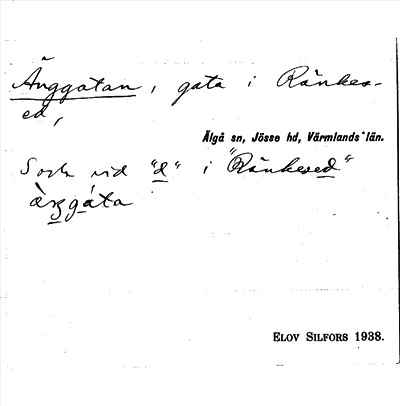 Änggatan, gata i Ränkes-
ed,
Älgå sn, Jösse hd, Värmlands län.
Sock vid "d" i "Ränkesed"
ELOV SILFORS 1938.